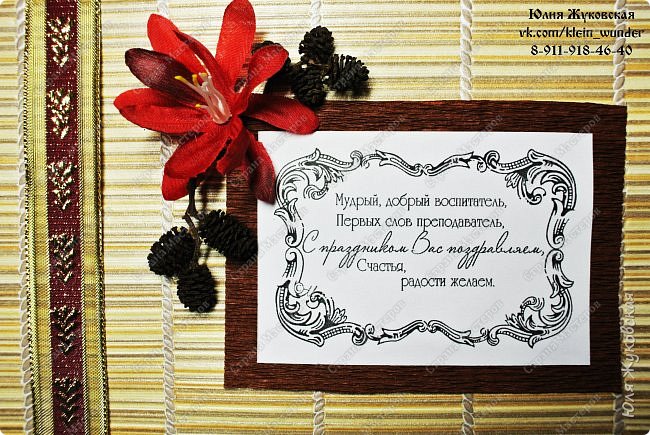 Юлия Жуковская
vk.com/klein_wunder
8-911-918-46-40
Мудрый, добрый воспитатель,
Первых слов преподаватель,
С праздником Вас поздравляем,
Счастья,
радости желаем.
Юлия Жуковская